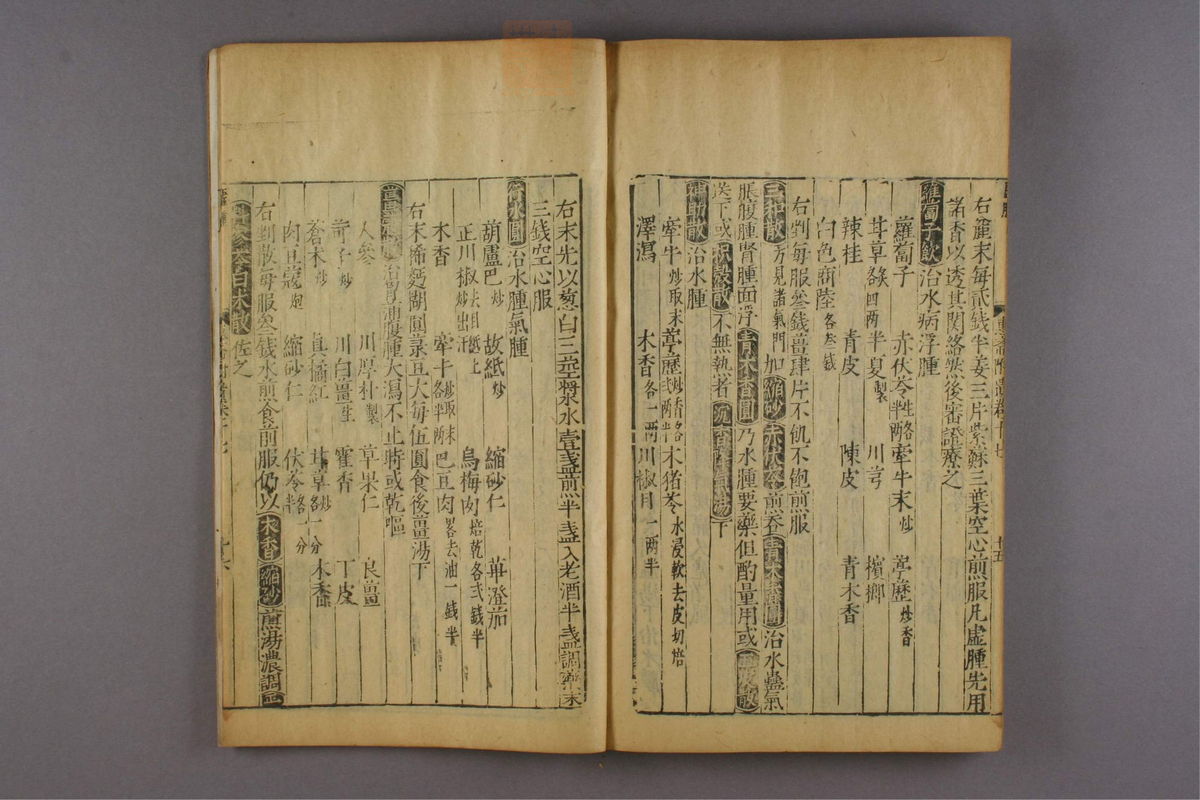 右麄末每貳錢半姜三片紫蘇三葉空心煎服凡虛腫先用
諸香以透其関絡然後審證療之
蘿蔔子飲治水病浮腫
蘿蔔子 赤伏苓 牽牛末炒 葶歷炒香
甘草炙四兩 半夏製 川芎 檳榔
辣桂 青皮 陳皮 青木香
白色商陸各叁錢
右剉每服叁錢薑肆片不飢不飽煎服
三和散方見諸氣門加縮砂赤伏苓煎吞青木香圓治水蠱氣
脹腹腫腎腫面浮青木香圓乃水腫要藥但酌量用或
送下或枳殼散不無執者
神助散治水腫
牽牛炒取末 葶歷 木猪苓水浸軟去皮切焙
澤瀉 木香各一兩 川椒目一兩半
右末先以葱白三莖漿水壹盞煎半盞入老酒半盞調藥末
三錢空心服
治水腫氣腫
葫蘆巴炒 故紙炒 縮砂仁 蓽澄茄
正川椒去目炒出汗 烏梅肉焙乾各貳錢半
木香 牽牛炒取末 巴豆肉畧去油一錢半
右末稀麪糊圓菉豆大每伍圓食後薑湯下
腫大瀉不止時或乾嘔
人參 川厚朴製 草果仁 良薑
訶子炒 川白薑生 藿香 丁皮
蒼朮炒 真橘紅 甘草 木香
肉豆蔻炮 縮砂仁 伏苓
右剉散每服叁錢水煎食前服仍以木香縮砂煎湯濃調
參苓白朮散佐之